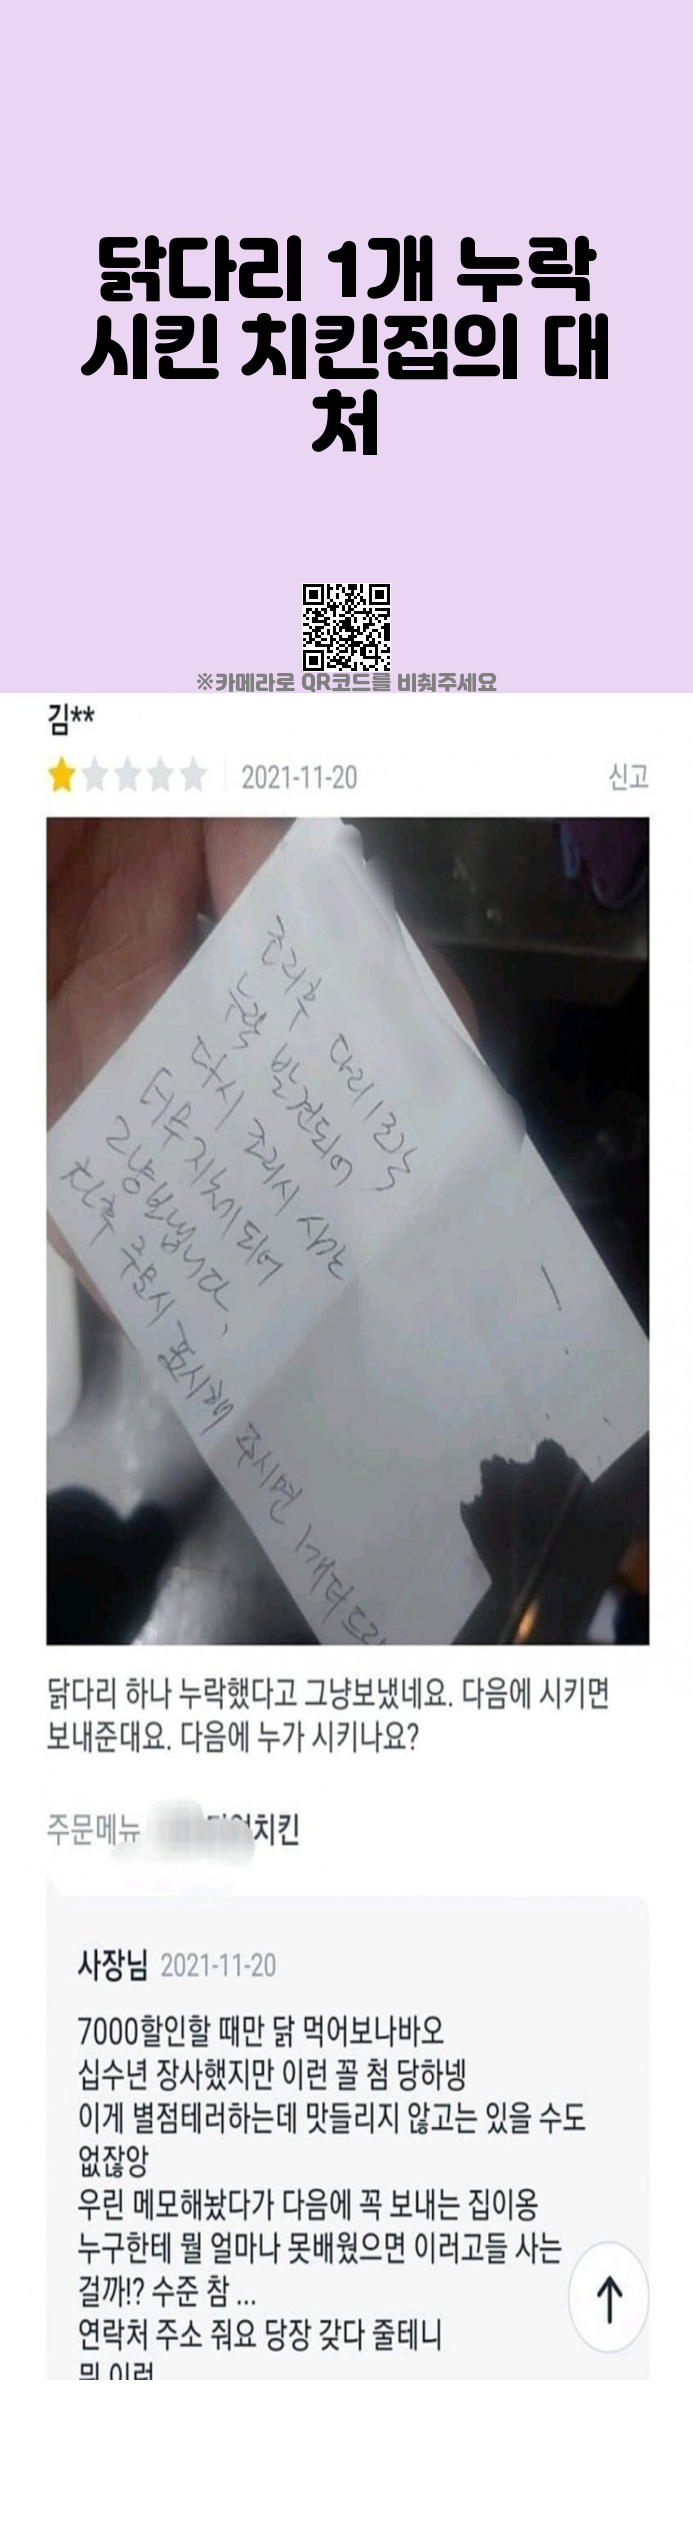 닭다리 1개 누락
시킨 치킨집의 대
처
※카메라로 QR코드를 비춰주세요
김**
2021-11-20
신고
조리후 다리1조각
누락 발견되어
다시 조리시 시간
너무 지체되어
그냥보냅니다,
차후 주문시 표시해 주시면 1개더드리
닭다리 하나 누락했다고 그냥보냈네요. 다음에 시키면
보내준대요. 다음에 누가 시키나요?
주문메뉴 치킨
사장님 2021-11-20
7000할인할 때만 닭 먹어보나바오
십수년 장사했지만 이런 꼴 첨 당하넹
이게 별점테러하는데 맛들리지 않고는 있을 수도
없잖앙
우린 메모해놨다가 다음에 꼭 보내는 집이옹
누구한테 뭘 얼마나 못배웠으면 이러고들 사는
걸까!? 수준 참 ...
연락처 주소 줘요 당장 갖다 줄테니